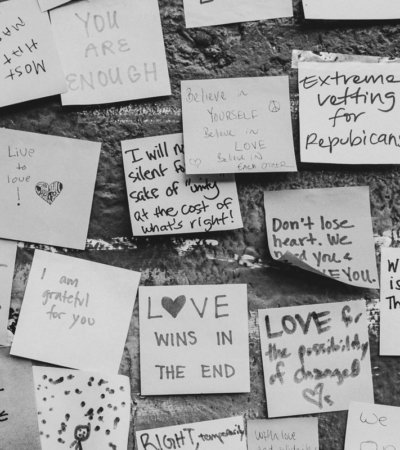 YOU
ARE
ENOUGH
MOST
THAT
MAN
Believe in
YOURSELF
Believe in
LOVE
Believe IN
EACH OTHER
EXTREME
vetting
for
Repubicans
Live
to
love
!
I will no
silent for
sake of "unity"
at the cost of
what's right!
Don't lose
heart. We
need you &
YOU.
I am
grateful
for you
LOVE
WINS IN
THE END
LOVE for
the possibility
of change!
W
is
Th
RIGHT, temporarily
with love
We